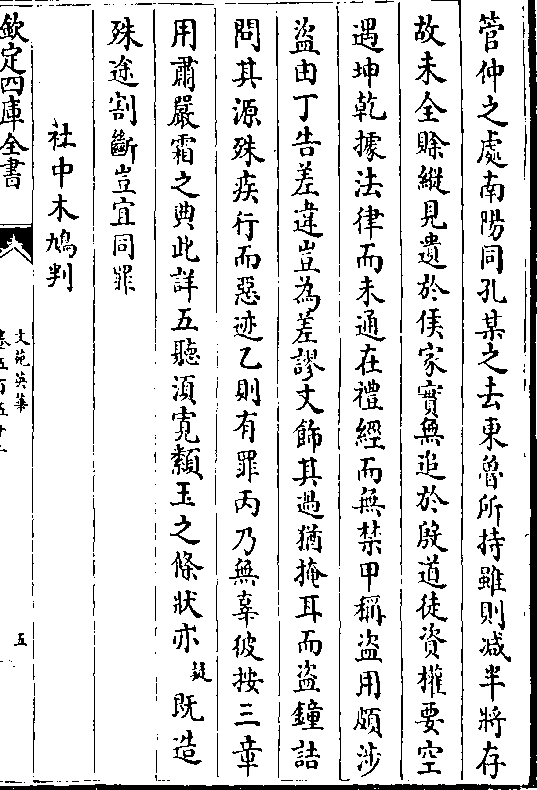 管仲之處南陽同孔某之去東魯所持雖則减半將存
故未全賖縱見遺於侯家實無追於殷道徒資權要空
遇坤乾據法律而未通在禮經而無禁甲稱盜用頗涉
盜由丁告差違豈為差謬文飾其過猶掩耳而盜鐘詰
問其源殊疾行而惡迹乙則有罪丙乃無辜彼按三章
用肅嚴霜之典此詳五聽湏寛纇玉之條狀亦疑既造
殊途割斷豈宜同罪
社中木鳩判
欽定四庫全書
文苑英華
五